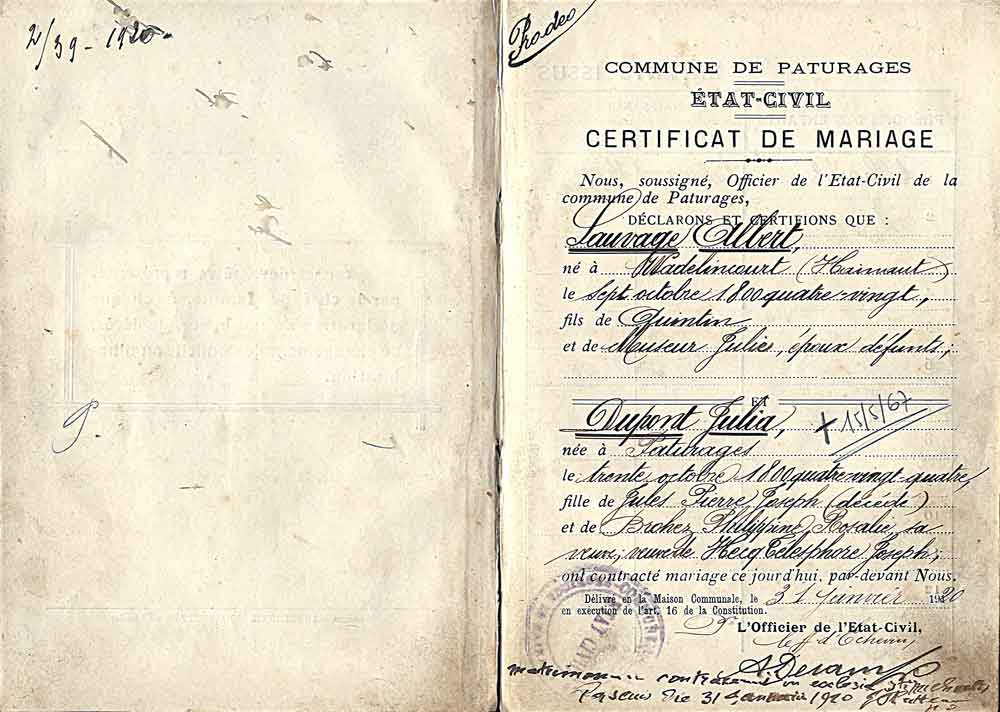 2/39 - 1920 -
Prodeo
COMMUNE DE PATURAGES
ÉTAT-CIVIL
CERTIFICAT DE MARIAGE
Nous, soussigné, Officier de l'Etat-Civil de la
commune de Paturages,
DÉCLARONS ET CERTIFIONS QUE :
Sauvage Albert,
né à Wadelincourt (Hainaut)
le sept octobre 1800 quatre-vingt,
fils de Quintin
et de Museur Julie, époux défunts;
ET
Dupont Julia, + 15/5/67
née à Paturages
le trente octobre 1800 quatre-vingt-quatre,
fille de Jules Pierre Joseph (décédé)
et de Brohez Philippine Rosalie, sa
veuve, veuve de Hecq Télesphore Joseph;
ont contracté mariage ce jourd'hui, par-devant Nous.
Délivré en la Maison Communale, le 31 Janvier 1920
en exécution de l'art. 16 de la Constitution.
L'Officier de l'Etat-Civil,
ff d'Echevin,
in ecclesia
die 31 Januarii 1920